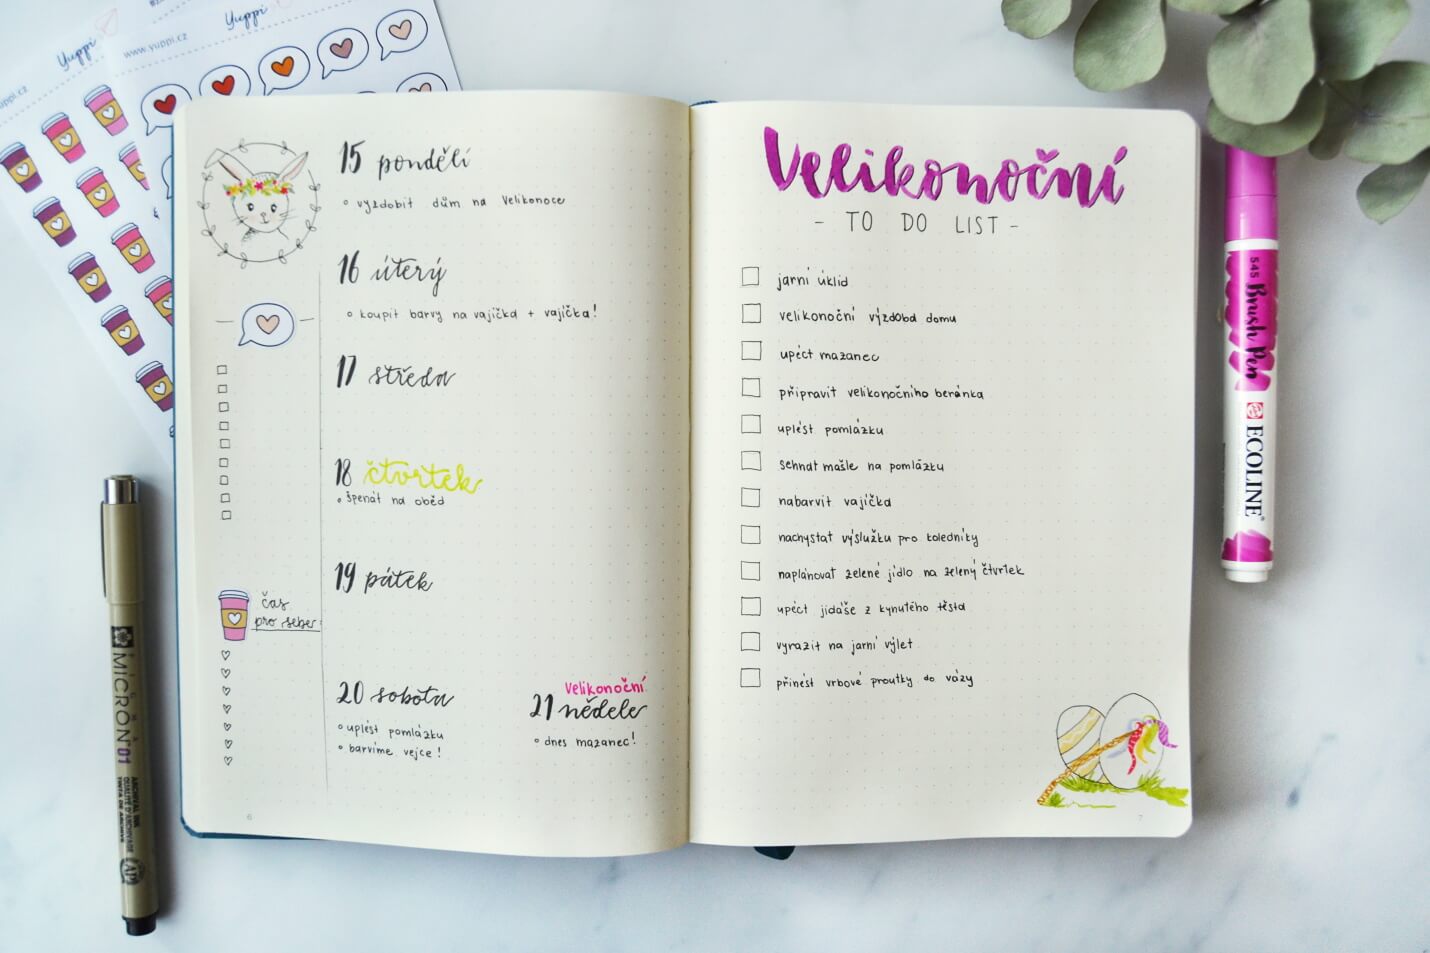 Yuppi
www.yuppi.cz
Yuppi
uppi.cz
15 pondělí
vyzdobit dům na Velikonoce
16 úterý
koupit barvy na vajíčka + vajíčka!
17 středa
18 čtvrtek
špenát na oběd
19 pátek
čas
pro sebe:
20 sobota
uplést pomlázku
barvíme vejce!
Velikonoční
21 neděle
dnes mazanec!
6
Velikonoční
- TO DO LIST -
jarní úklid
velikonoční výzdoba domu
upéct mazanec
připravit velikonočního beránka
uplést pomlázku
sehnat mašle na pomlázku
nabarvit vajíčka
nachystat výslužku pro koledníky
naplánovat zelené jídlo na zelený čtvrtek
upéct jidáše z kynutého těsta
vyrazit na jarní výlet
přinést vrbové proutky do vázy
7
545 Brush Pen
ECOLINE
MICRON 01
ARCHIVAL INK
QUALITÉ D'ARCHIVAGE
TINTA DE ARCHIVE